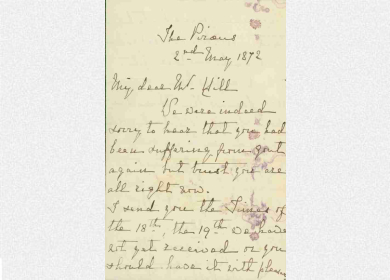 The Piraeus
2nd May 1872
My dear Mr. Hill
We were indeed
sorry to hear that you had
been suffering from gout
again but trust you are
all right now.
I send you the Times of
the 18th, the 19th we have
not yet received or you
should have it with pleasu